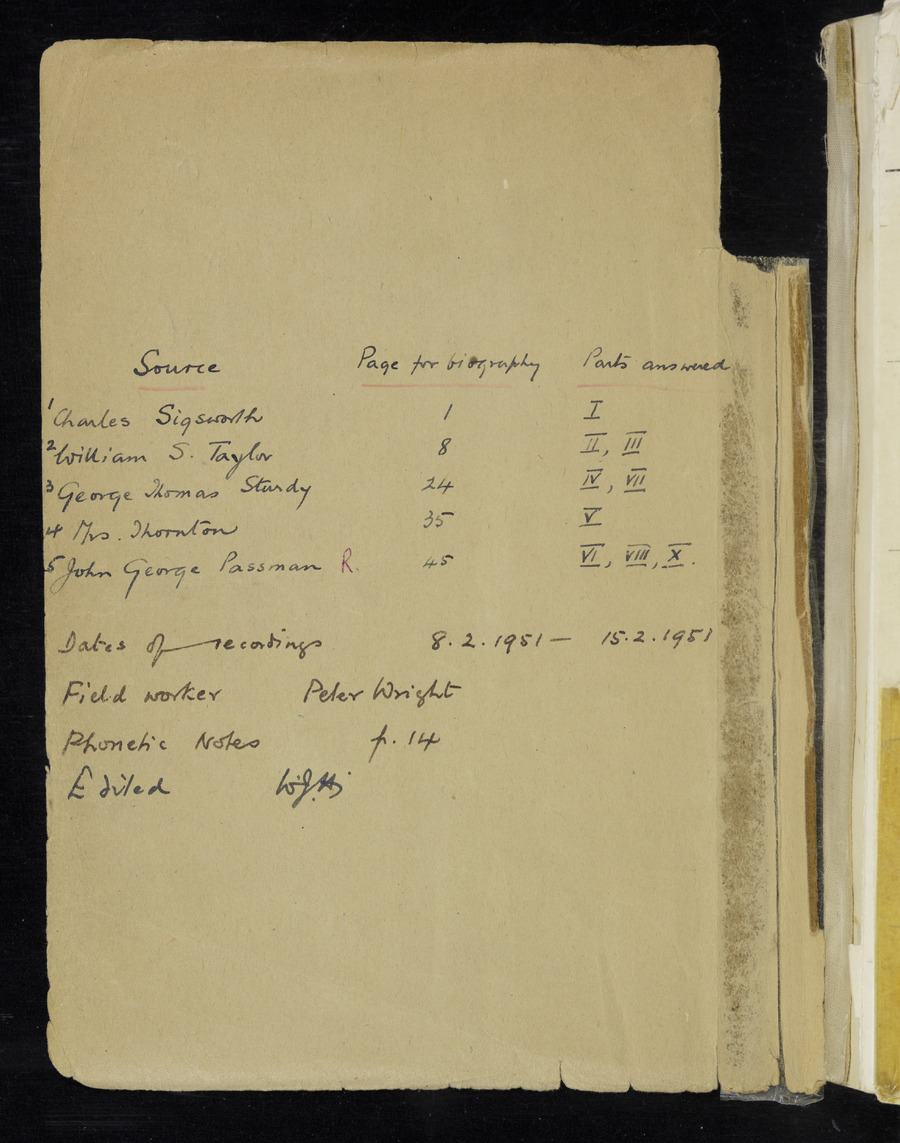 Source Page for biography Parts answered
1 Charles Sigsworth 1 I
2 William S. Taylor 8 II, III
3 George Thomas Sturdy 24 IV, VII
4 Mrs. Thornton 35 V
5 John George Passman R. 45 VI, VIII, X.
Dates of recordings 8.2.1951 — 15.2.1951
Field worker Peter Wright
Phonetic Notes p. 14
Edited